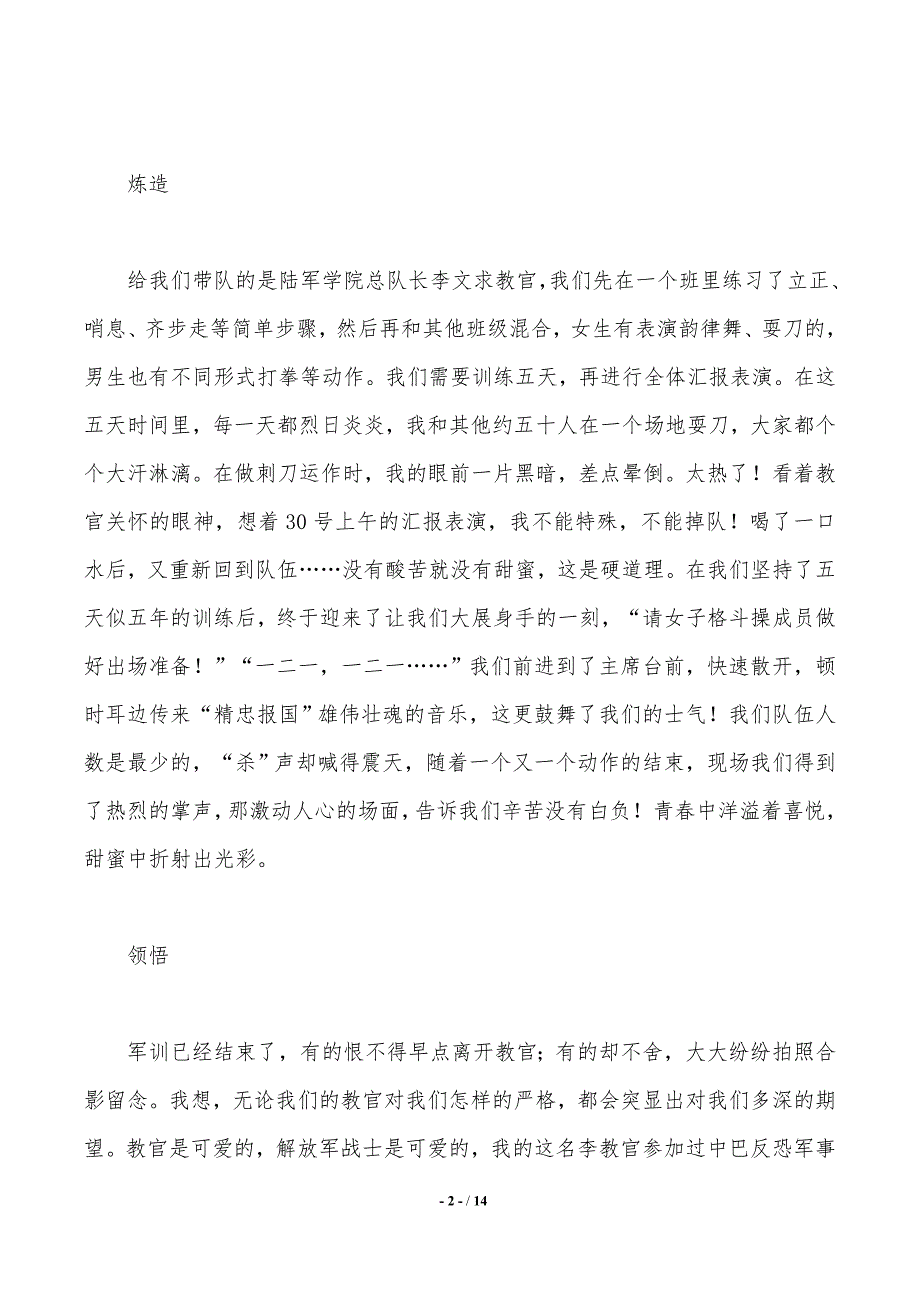 炼造
给我们带队的是陆军学院总队长李文求教官，我们先在一个班里练习了立正、
哨息、齐步走等简单步骤，然后再和其他班级混合，女生有表演韵律舞、耍刀的，
男生也有不同形式打拳等动作。我们需要训练五天，再进行全体汇报表演。在这
五天时间里，每一天都烈日炎炎，我和其他约五十人在一个场地耍刀，大家都个
个大汗淋漓。在做刺刀运作时，我的眼前一片黑暗，差点晕倒。太热了！看着教
官关怀的眼神，想着 30 号上午的汇报表演，我不能特殊，不能掉队！喝了一口
水后，又重新回到队伍……没有酸苦就没有甜蜜，这是硬道理。在我们坚持了五
天似五年的训练后，终于迎来了让我们大展身手的一刻，“请女子格斗操成员做
好出场准备！”“一二一，一二一……”我们前进到了主席台前，快速散开，顿
时耳边传来“精忠报国”雄伟壮魂的音乐，这更鼓舞了我们的士气！我们队伍人
数是最少的，“杀”声却喊得震天，随着一个又一个动作的结束，现场我们得到
了热烈的掌声，那激动人心的场面，告诉我们辛苦没有白负！青春中洋溢着喜悦，
甜蜜中折射出光彩。
领悟
军训已经结束了，有的恨不得早点离开教官；有的却不舍，大大纷纷拍照合
影留念。我想，无论我们的教官对我们怎样的严格，都会突显出对我们多深的期
望。教官是可爱的，解放军战士是可爱的，我的这名李教官参加过中巴反恐军事
- 2 - / 14